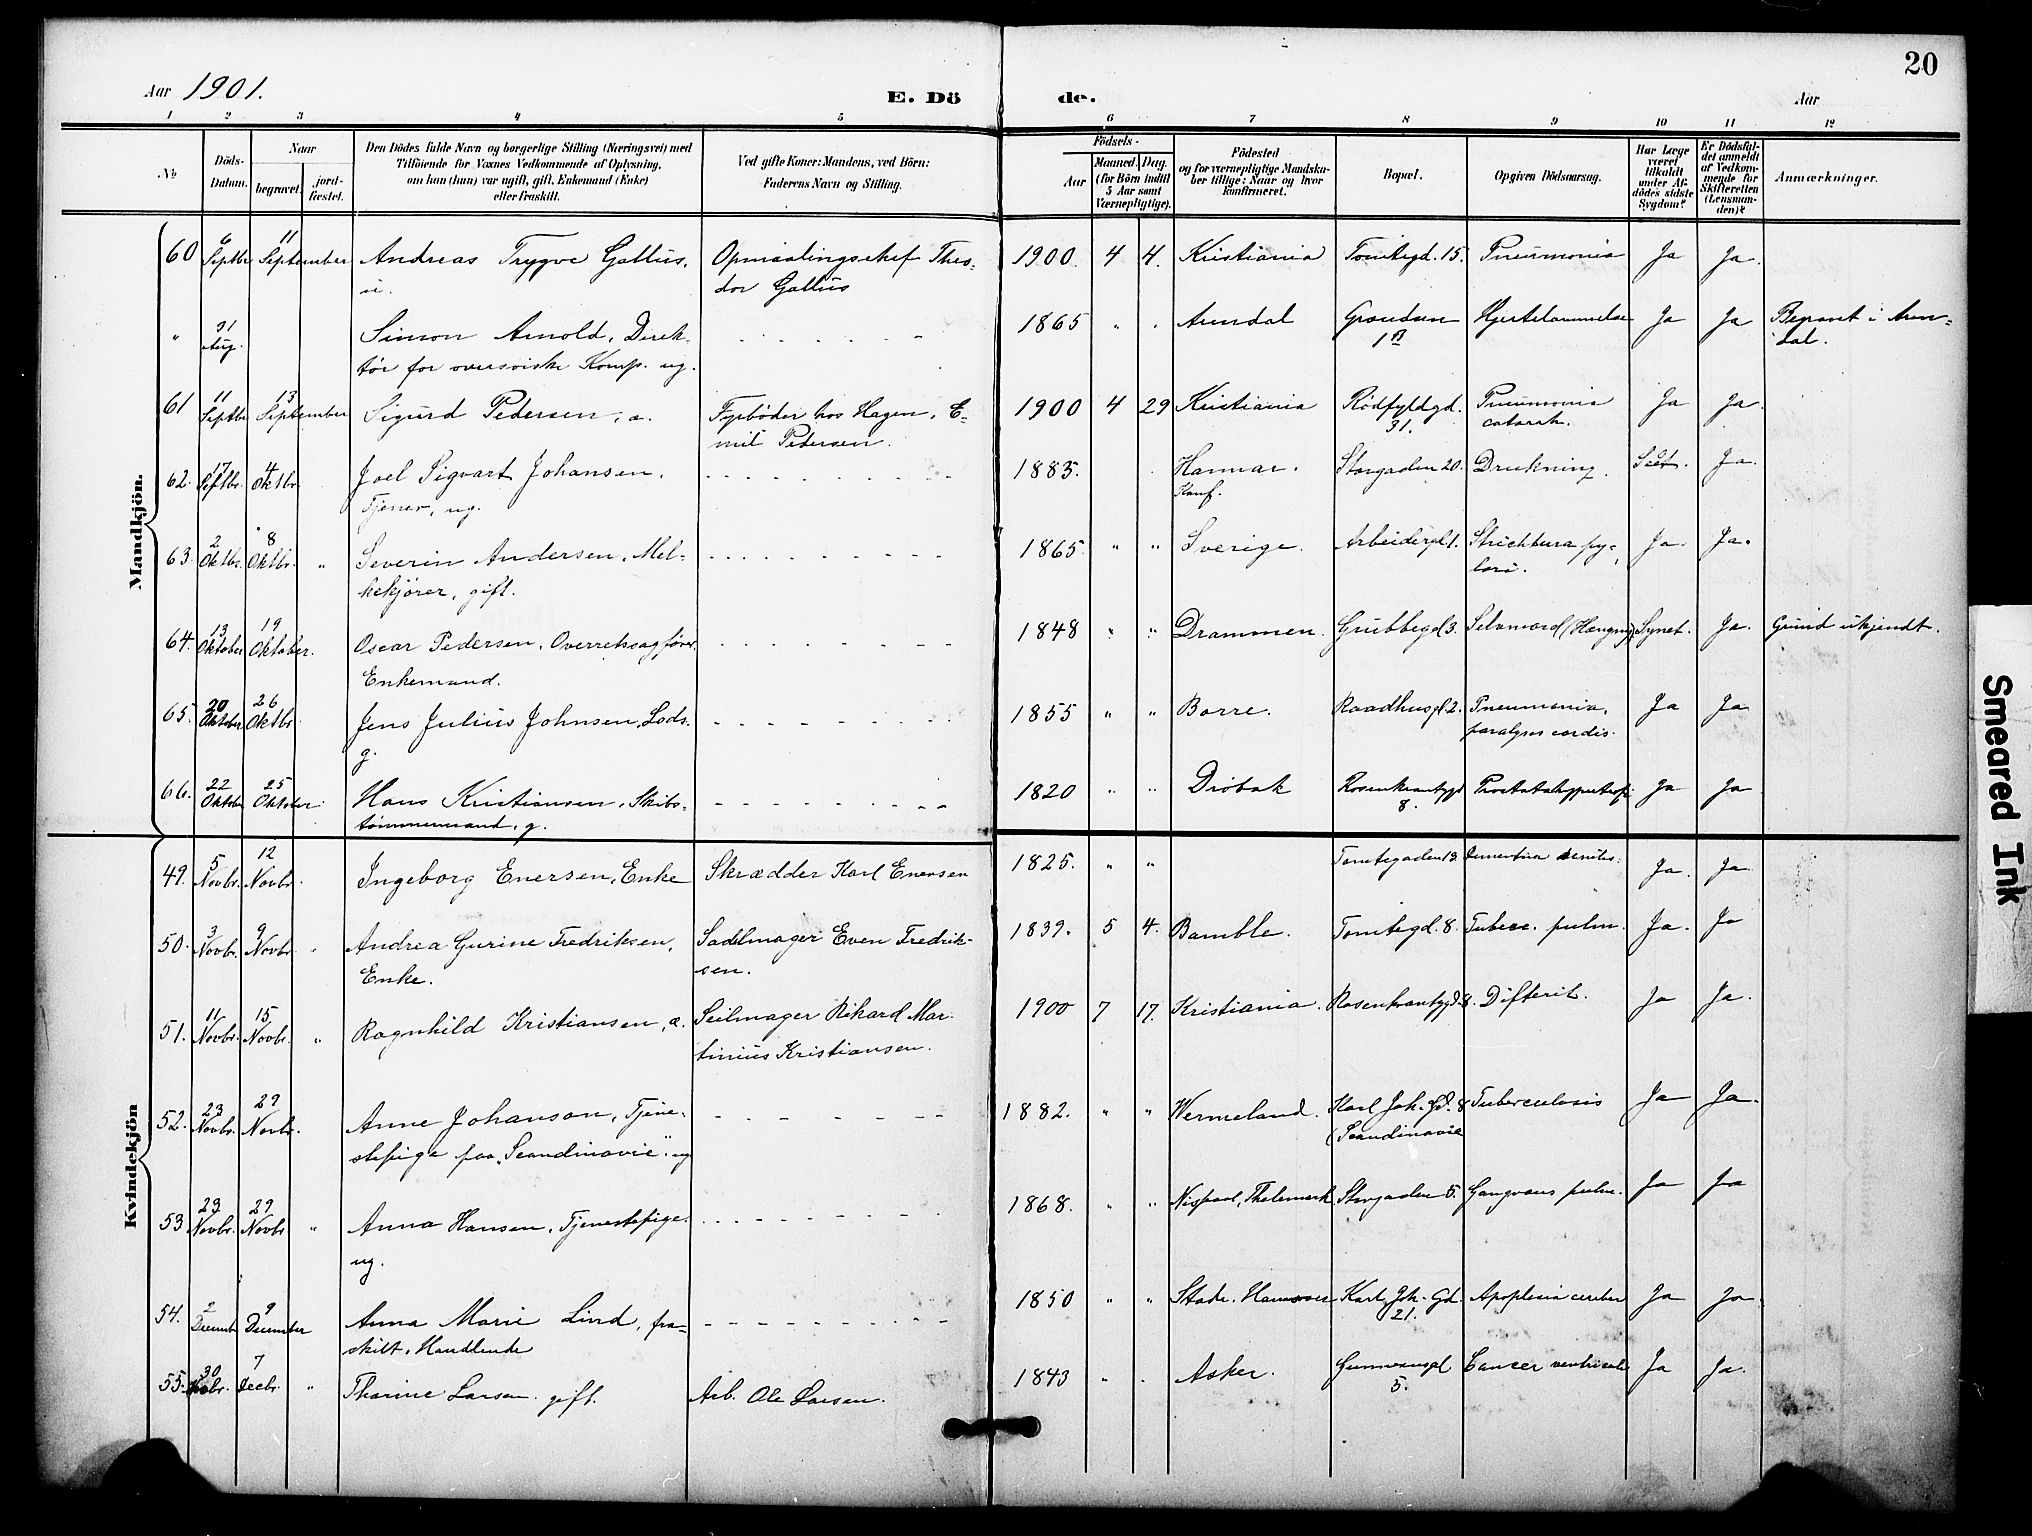 20
Aar 1901.
E. Dö
de.
Aar
1 2 3 4 5 6 7 8 9 10 11 12
No
Döds-
Datum.
Naar
begravet.
jord-
fæstet.
Den Dödes fulde Navn og borgerlige Stilling (Næringsvei) med
Tilföiende for Voxnes Vedkommende af Oplysning,
om han (hun) var ugift, gift, Enkemand (Enke)
eller fraskilt.
Ved gifte Koner: Mandens, ved Börn:
Faderens Navn og Stilling.
Födsels-
Aar
Maaned.
Dag.
(for Börn indtil
5 Aar samt
Værnepligtige).
Födested
og for værnepligtige Mandska-
ber tillige: Naar og hvor
konfirmeret.
Bopæl.
Opgiven Dödsaarsag.
Har Læge
været
tilkaldt
under Af-
dödes sidste
Sygdom?
Er Dödsfal-
det anmeldt
af Vedkom-
mende for
Skifteretten
(Lensman-
den)?
Anmærkninger.
Mandkjön.
60 6 Septbr 11 September Andreas Trygve Gallus, Opmaalingschef Theo- 1900. 4 4. Kristiania Tomtegd. 15. Pneumonia Ja Ja.
dor Gallus
" 31 Aug. Simon Arnold, Direk- 1865 " " Arendal Grændsen Hjertelammelse Ja Ja Begravt i Aren-
tör for oversöiske Komp. ug. dal.
61 11 Septbr 13 September Sigurd Pedersen, æ. Fyrböder hos Hagen, E- 1900 4 29 Kristiania Rödfyldgd. Pneumonia Ja Ja.
mil Pedersen. 31. catarrh.
62. 17 Septbr. 4 Oktbr Joel Sigvart Johansen. 1883. Hamar. Storgaden 20. Drukning. Ja.
Tjener, ug. Konf.
63. 2 Oktbr. 8 Oktbr. " Severin Andersen, Mel- 1865 " " Sverige. Arbeidergd. 1. Strichtura py- Ja. Ja.
kekjörer, gift. lori.
64. 13 Oktober 19 Oktober. Oscar Pedersen, Overretssagförer, 1848 " " Drammen. Grubbegd 3. Selvmord (Hængning) Synet. Ja. Grund ukjendt.
Enkemand.
65. 20 Oktober 26 Oktbr. Jens Julius Johnsen, Lods. 1855 " " Borre. Raadhusgd 2. Pneumonia, Ja Ja
g. paralyses cordis.
66. 22 Oktober 25 Oktober Hans Kristiansen, Skibs- 1820 " " Dröbak Rosenkrantzgd Prostatahypertrofi Ja Ja
tömmermand, g. 8.
Kvindekjön
49. 5 Novbr. 12 Novbr. Ingeborg Enersen, Enke Skrædder Karl Enersen 1825. " " Tomtegaden 13. Dementia senilis. Ja. Ja.
50. 3 Novbr. 9 Novbr. " Andrea Gurine Fredriksen, Sadelmager Even Fredrik- 1839. 5 4. Bamble. Tomtegd. 8. Tuberc. pulm. Ja. Ja
Enke. sen.
51. 11 Novbr. 15 Novbr. " Ragnhild Kristiansen, æ. Seilmager Rikard Mar- 1900 7 17. Kristiania. Rosenkrantzgd. 8. Difterit. Ja Ja.
tinius Kristiansen.
52. 23 Novbr. 29 Novbr. Anne Johanson, Tjene- 1882. " " Wermeland. Karl Joh. Gd. 8 Tuberculosis Ja Ja.
stepige paa „Scandinavie" ug (Scandinavie
53 23 Novbr. 29 Novbr. " Anna Hansen, Tjenestepige. 1868. " " Thelemark Storgaden 5. Gangræns pulm. Ja Ja
ug.
54. 2 Decembr 9 December Anna Marie Lind, fra- 1850 " " Stade. Hannover Karl Joh. Gd. Apoplexia cerebri Ja Ja
skilt, Handlende 21.
55. 30 Novbr. 7 Decbr. " Thorine Larsen. gift. Arb. Ole Larsen. 1843 " " Asker. Cancer ventriculi Ja Ja.
5.
Smeared Ink